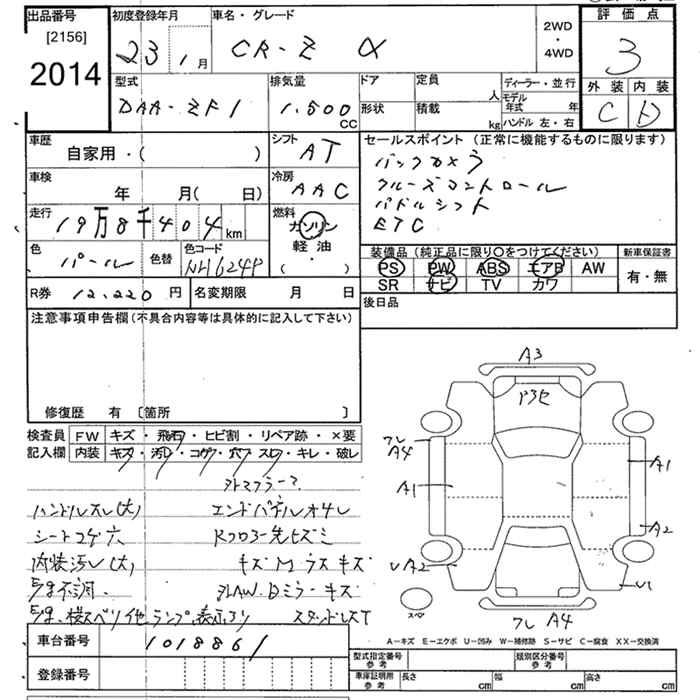 出品番号
[2156]
2014
初度登録年月
23 1月
車名・グレード
CR-Z α
2WD
・
4WD
評価点
3
外装 内装
C D
型式
DAA-ZF1
排気量
1,500
CC
ドア
形状
定員
人
積載
kg
ディーラー・並行
モデル
年式 年
ハンドル 左・右
車歴
自家用・( )
シフト
AT
車検
年 月( 日)
冷房
AAC
走行
19万8千404
km
燃料
ガソリン
軽油・
( ・ )
色
パール
色替
色コード
NH624P
R券 12,220 円
名変期限 月 日
セールスポイント(正常に機能するものに限ります)
バックカメラ
クルーズコントロール
パドルシフト
ETC
装備品(純正品に限り○をつけてください)
PS PW ABS エアB AW
SR ナビ TV カワ
新車保証書
有・無
後日品
注意事項申告欄(不具合内容等は具体的に記入して下さい)
修復歴 有 [箇所 ]
検査員
記入欄
FW キズ・飛石・ヒビ割・リペア跡・×要
内装 キズ・汚レ・コゲ・穴・スレ・キレ・破レ
ハンドルスレ(大)
シートコゲ穴
内装汚レ(大)
キズ
スタッドレスT
A3
フレ
A4
A1
A1
A2
UA2
U1
スペア
フレ A4
A-キズ E-エクボ U-凹み W-補修跡 S-サビ C-腐食 XX-交換済
車台番号 1018861
登録番号
型式指定番号
参考
類別区分番号
参考
車庫証明用
参考
長さ cm
幅 cm
高さ cm